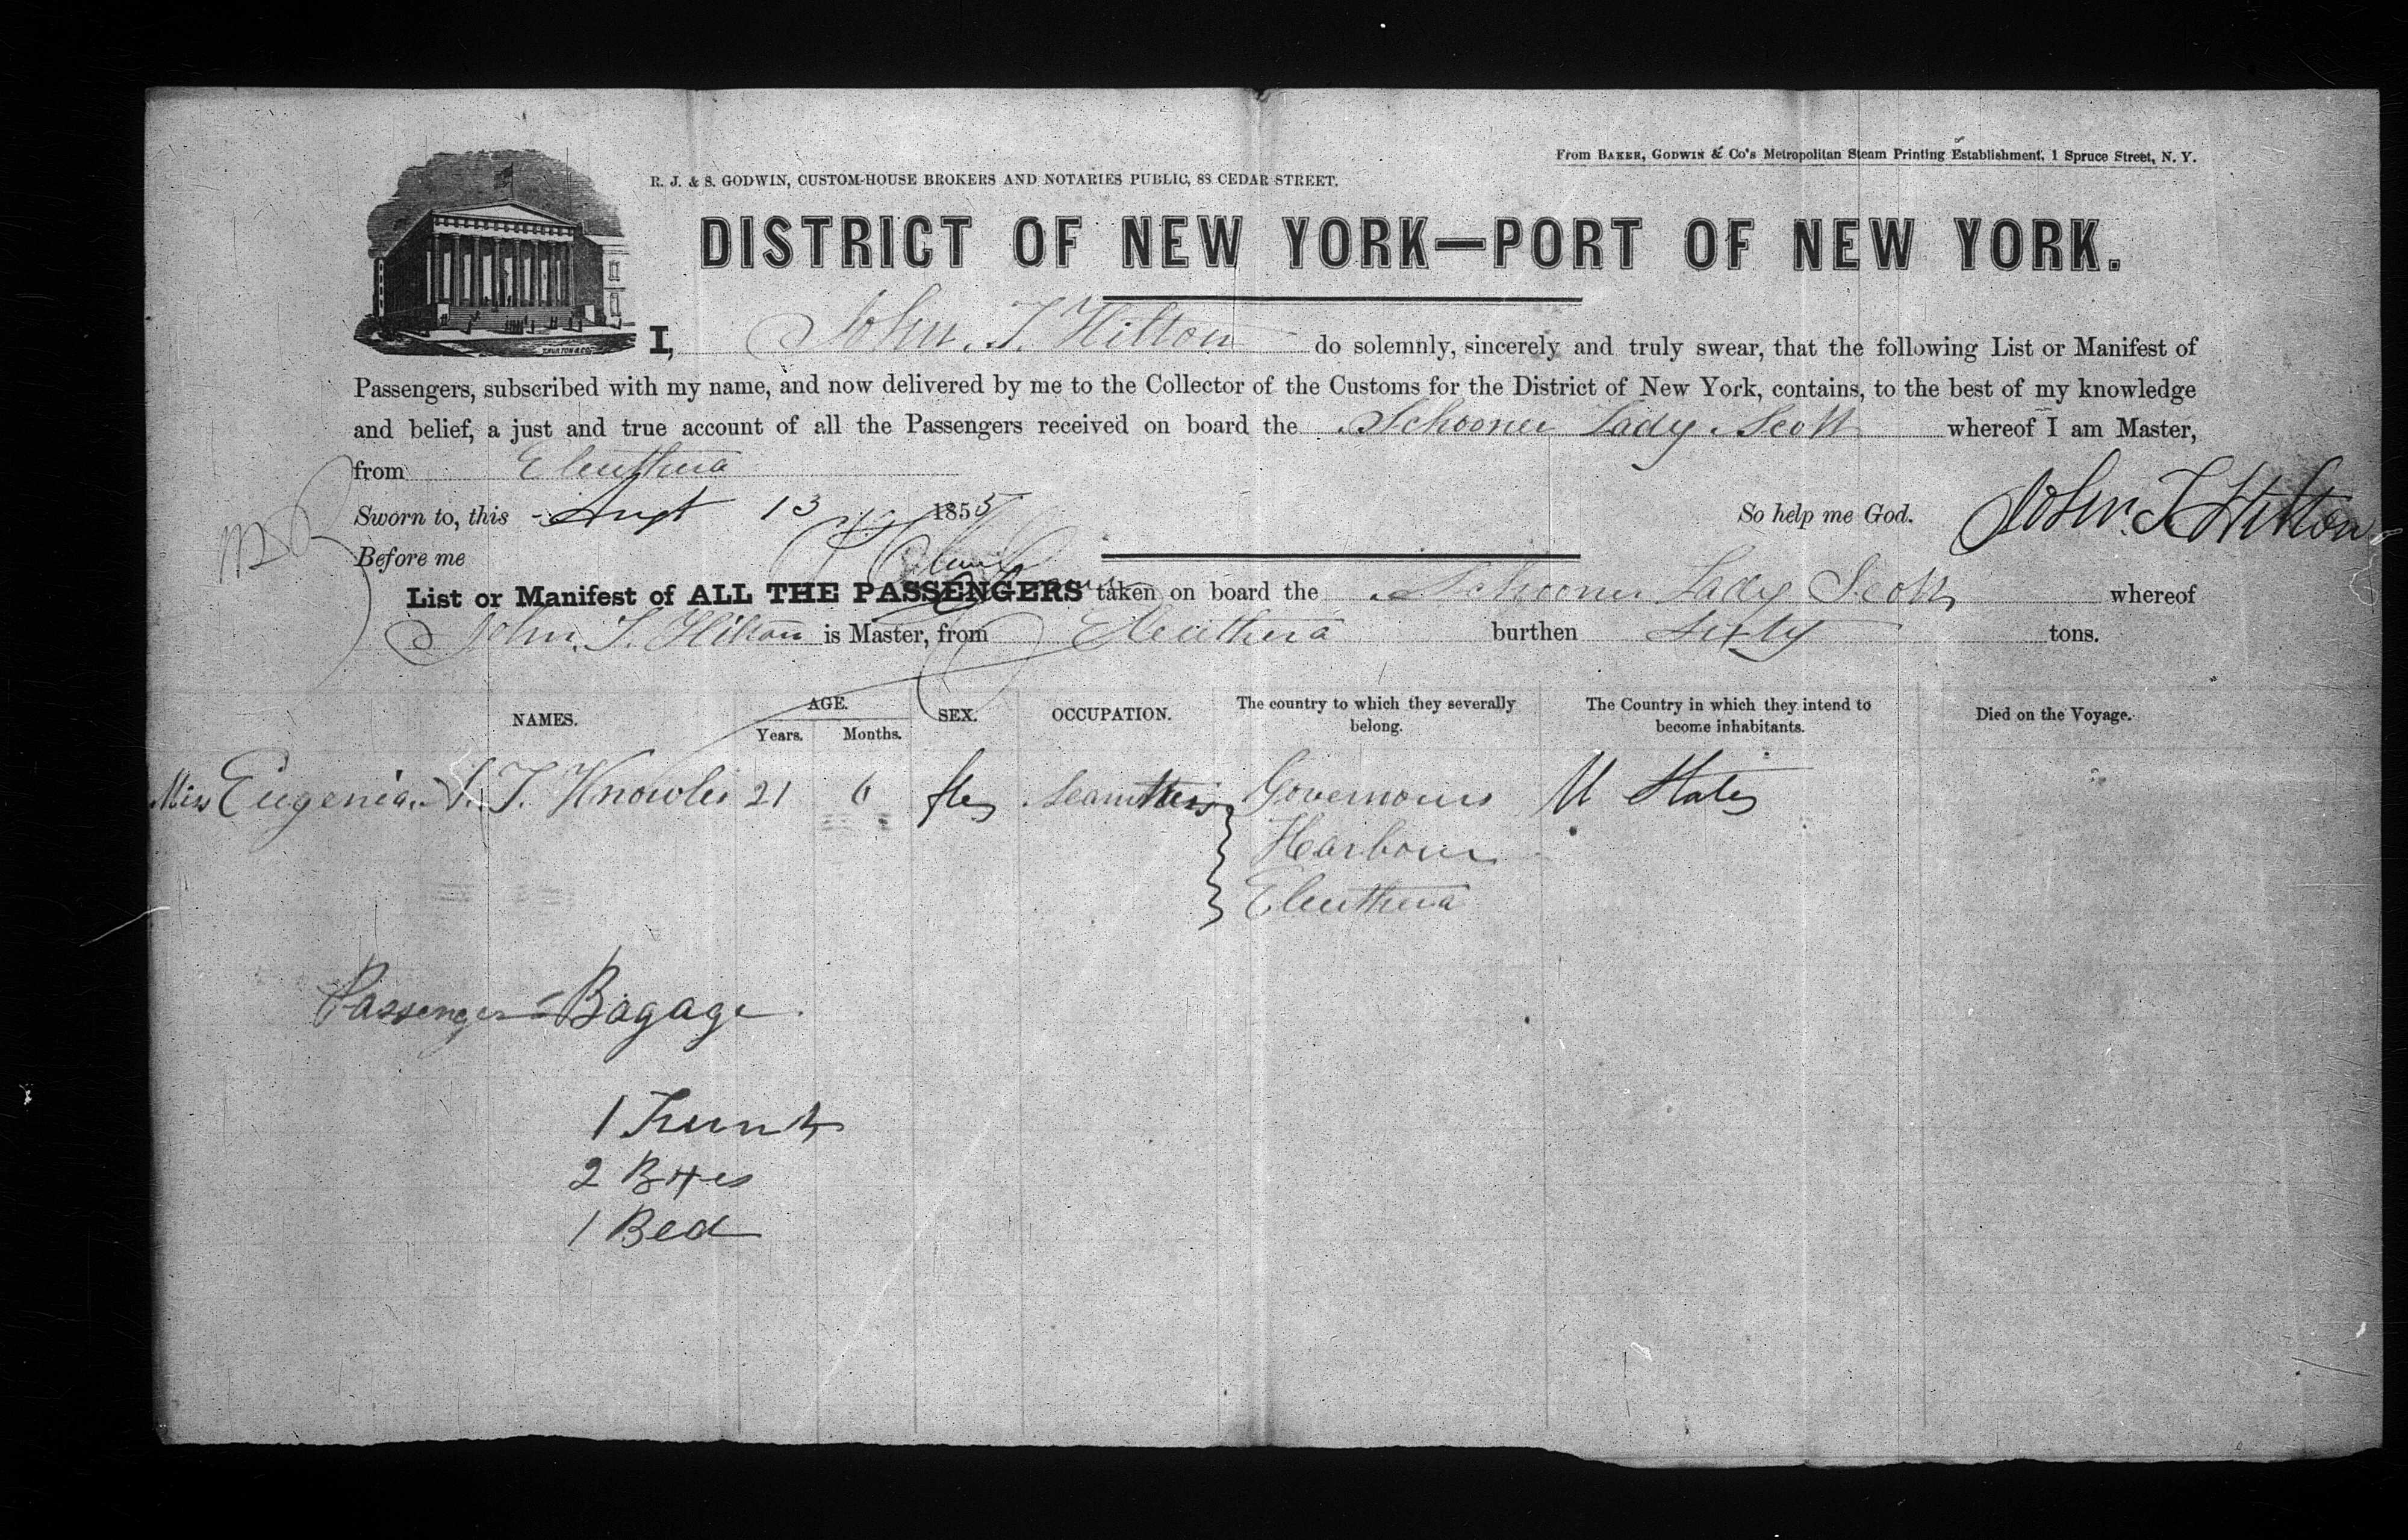 From BAKER, GODWIN & Co's Metropolitan Steam Printing Establishment, 1 Spruce Street, N. Y.
R. J. & S. GODWIN, CUSTOM-HOUSE BROKERS AND NOTARIES PUBLIC, 88 CEDAR STREET.
DISTRICT OF NEW YORK—PORT OF NEW YORK.
I, John. T. Hilton do solemnly, sincerely and truly swear, that the following List or Manifest of
Passengers, subscribed with my name, and now delivered by me to the Collector of the Customs for the District of New York, contains, to the best of my knowledge
and belief, a just and true account of all the Passengers received on board the Schooner Lady Scott whereof I am Master,
from Eleuthera
Sworn to, this Augt 13 1855 So help me God. John. T Hilton
Before me
List or Manifest of ALL THE PASSENGERS taken on board the Schooner Lady Scott whereof
John. T. Hilton is Master, from Eleuthera burthen sixty tons.
NAMES. AGE. Years. Months. SEX. OCCUPATION. The country to which they severally belong. The Country in which they intend to become inhabitants. Died on the Voyage.
Miss Eugenia. T. Knowles 21 6 Governours U States
Harbour
Eleuthera
Passenger Bagage.
1 Trunk
2 Bxes
1 Bed